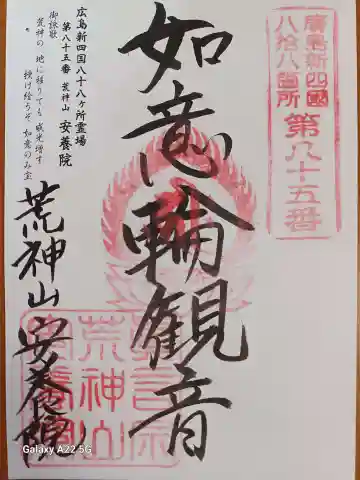 廣島新四國
八拾八箇所
第八十五番
如意輪観音
広島新四国八十八ヶ所霊場
第八十五番 荒神山 安養院
御詠歌
荒神の 地に移りても 威光増す
授け給うぞ 如意のみ宝
荒神山 安養院
荒神山
Galaxy A22 5G